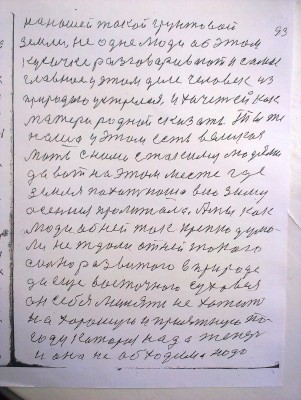 на нашей такой грунтовой
93
земли, не одне люди об этом
кусочке разговаривают и самое
главное у этом деле человек из
природою устрелся, и хочется как
матери родной сказать. Ты же
наша у этом есть великая
мать с нами стогими людями
да вот на этом месте где
земля похат наша вею зиму
осення пролитала. А мы как
люди об ней так крепко думо
ли, не ждали от ней такого
сильно развитого в природе
да еще восточного суховея
он себя менять не хотит
на хорошую и приятную по
году которая надо между
и она не обходима надо